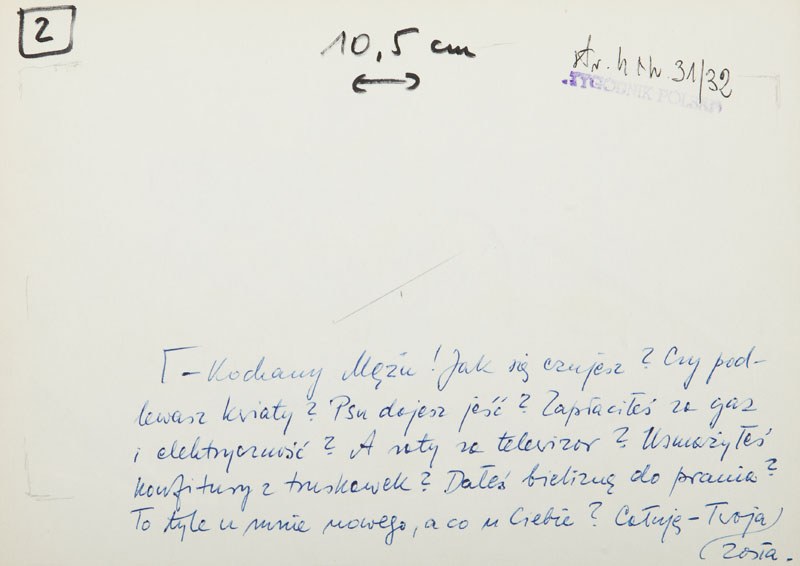 2
10,5 cm
str. 4 Nr. 31/32
TYGODNIK POLSKI
– Kochany Mężu! Jak się czujesz? Czy pod-
lewasz kwiaty? Psu dajesz jeść? Zapłaciłeś za gaz
i elektryczność? A raty za telewizor? Usmażyłeś
konfitury z truskawek? Dałeś bieliznę do prania?
To tyle u mnie nowego, a co u Ciebie? Całuję – Twoja
Zosia.